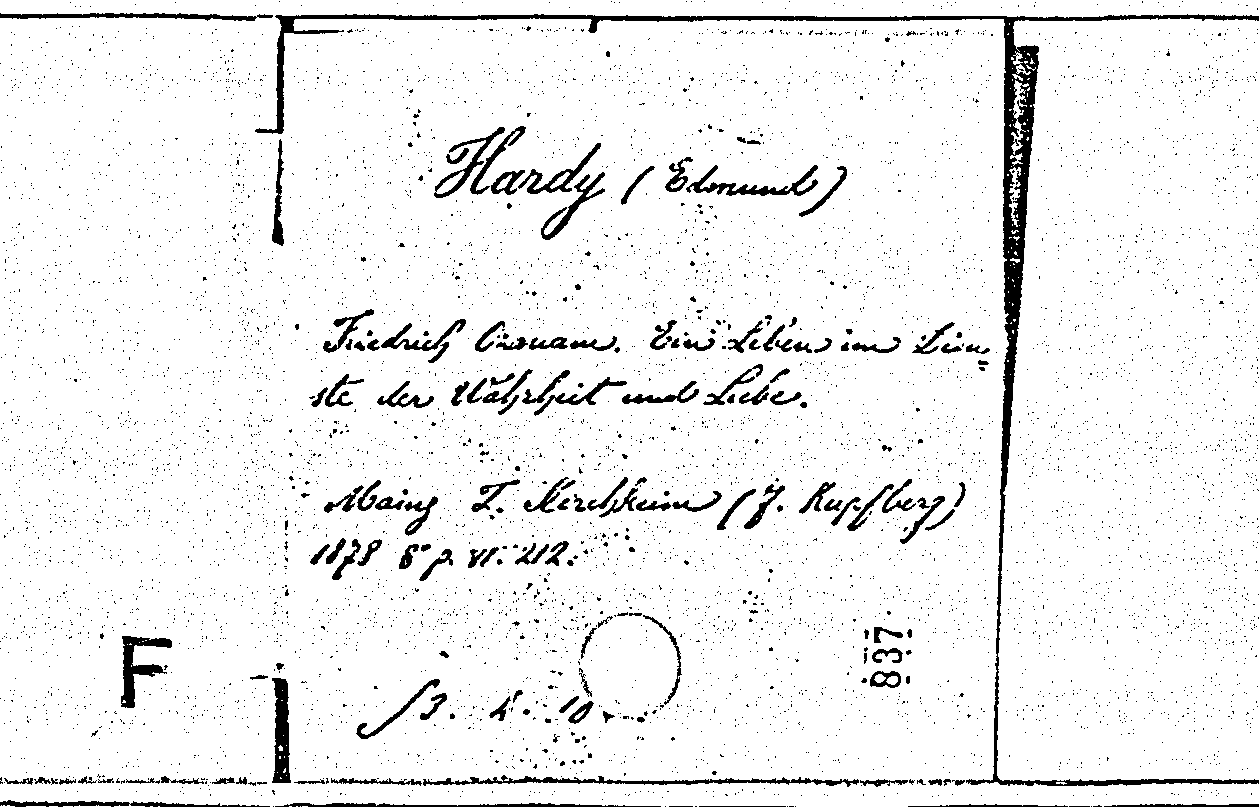 Hardy (Edmund)
Friedrich Ozanam. Ein Leben im Dien=
ste der Wahrheit und Liebe.
Mainz F. Kirchheim (J. Kupferberg)
1878 8° p. VI. 212.
F
837
3. 10